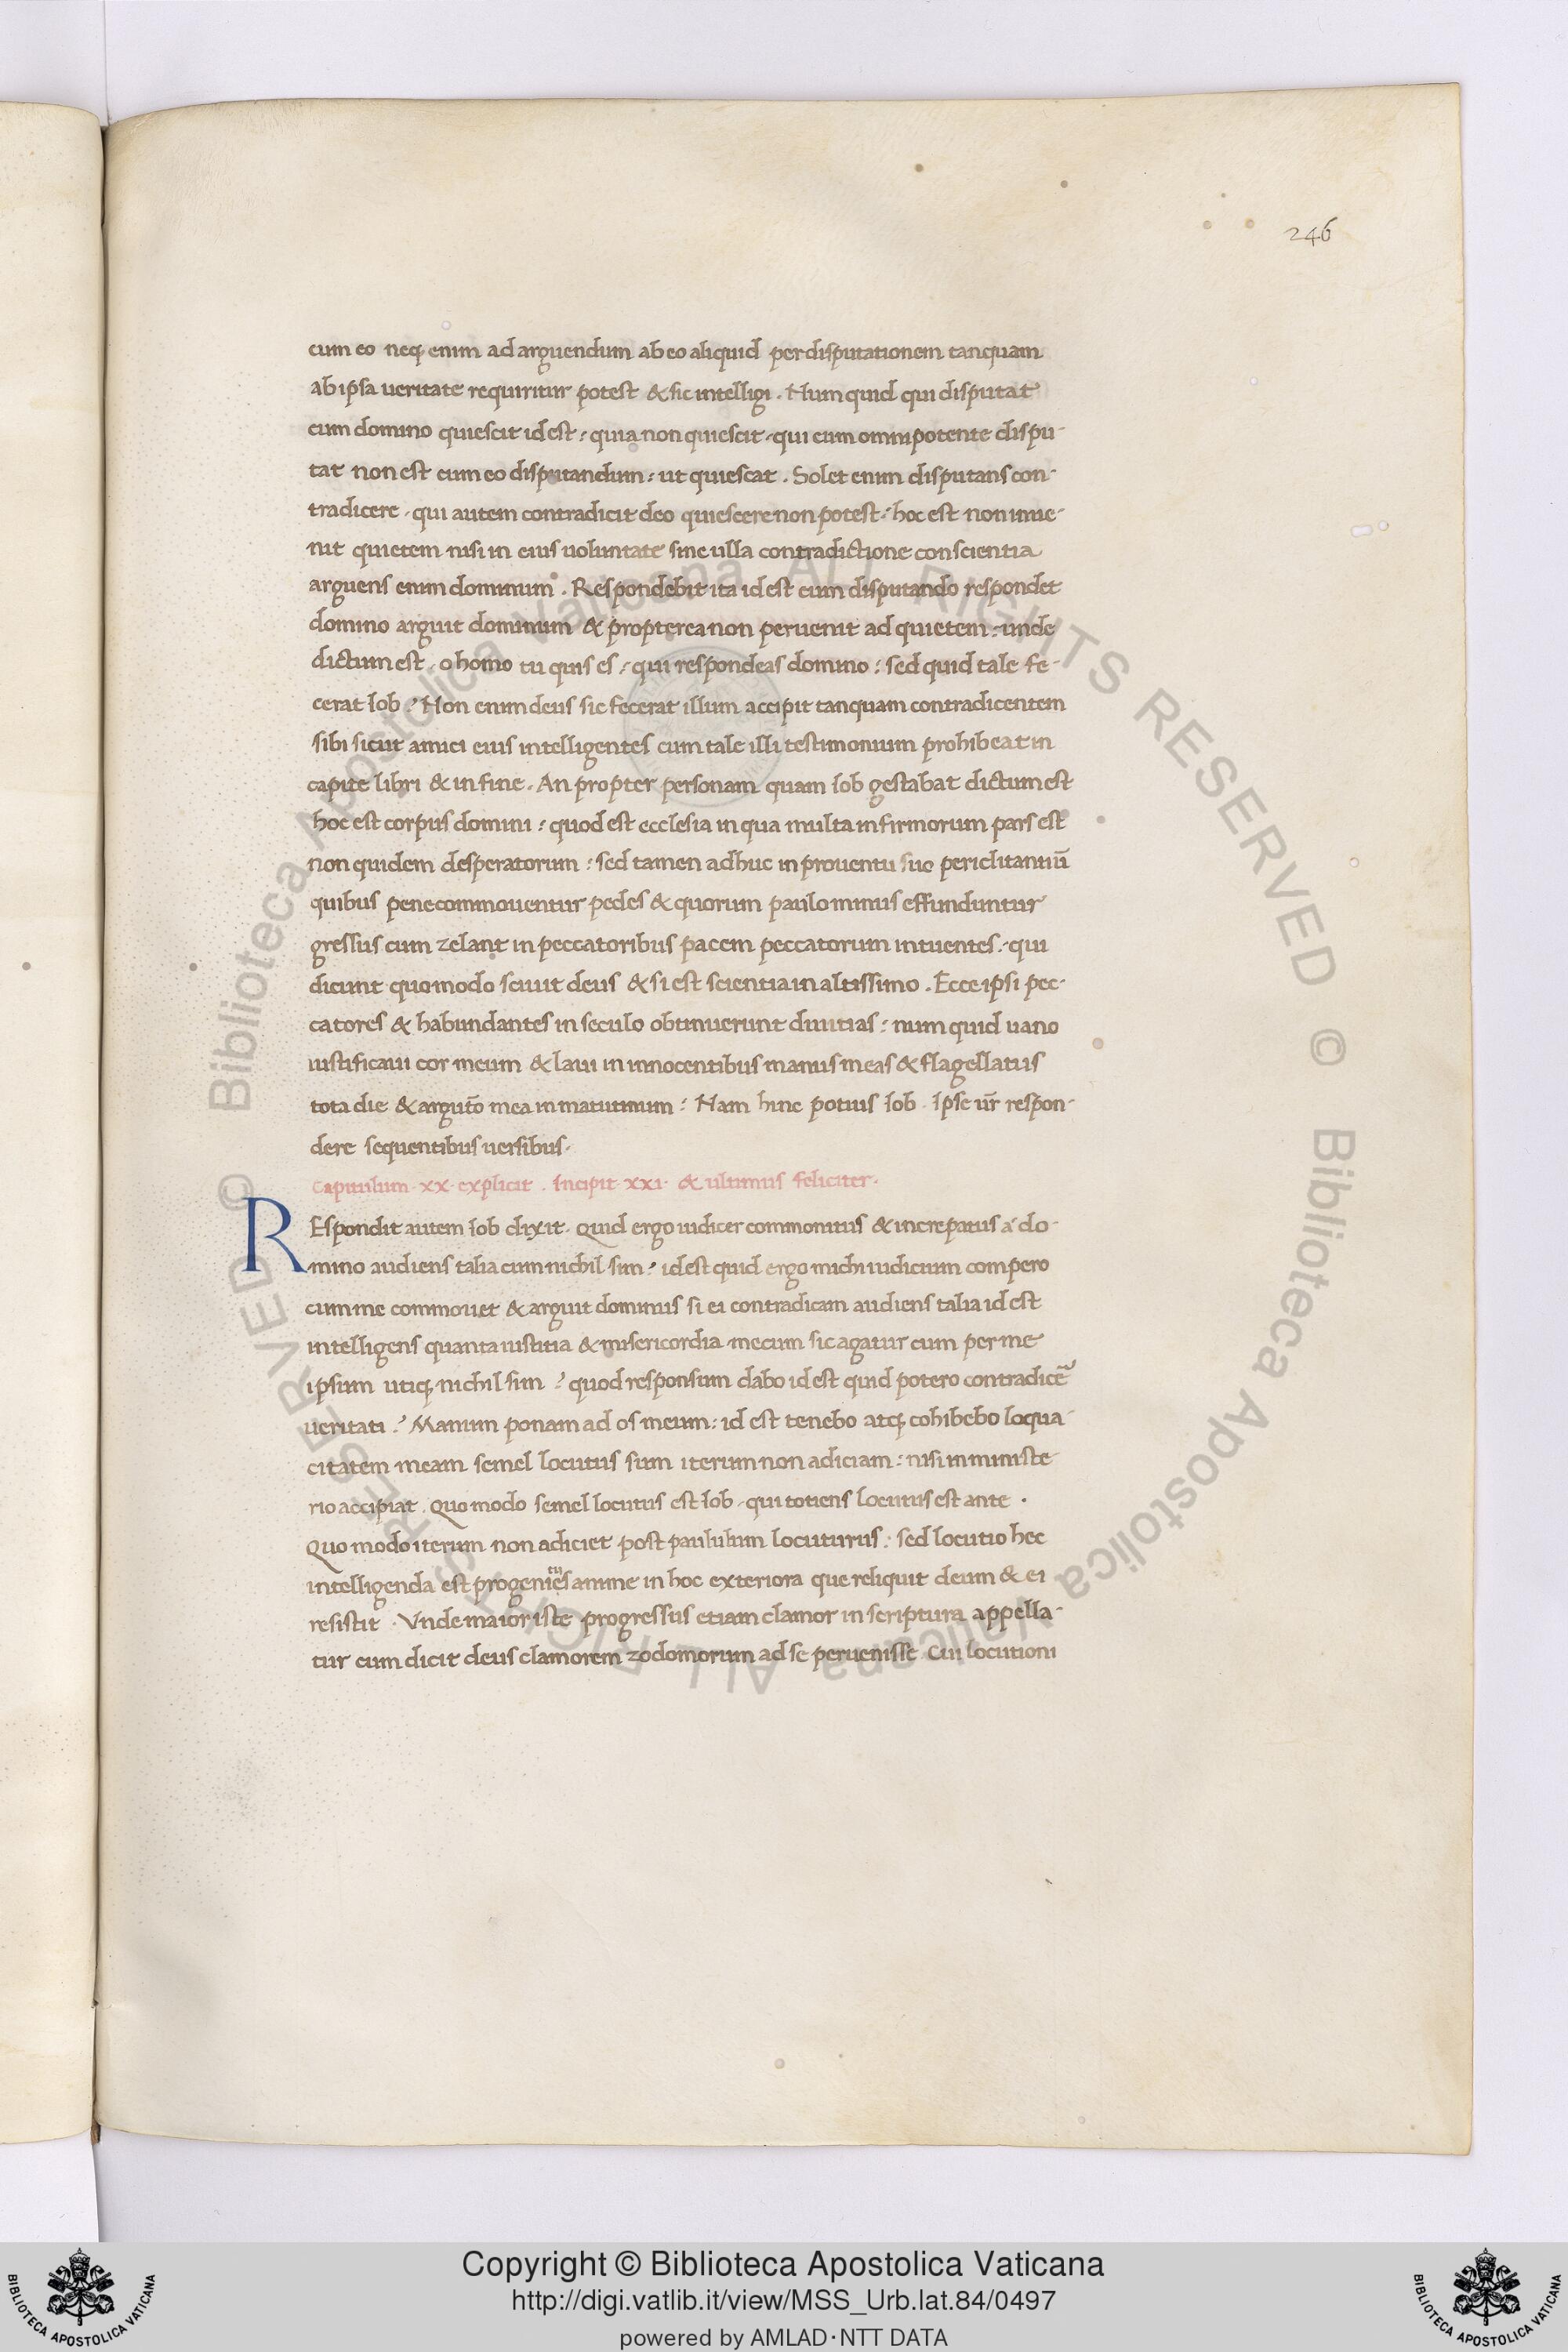 246
cum eo neq; enim ad arguendum ab eo aliquid per disputationem tanquam
ab ipsa ueritate requiritur potest & sic intelligi . Num quid qui disputat
cum domino quiescit id est : quia non quiescit · qui cum omnipotente dispu-
tat non est cum eo disputandum : ut quiescat . Solet enim disputans con-
tradicere · qui autem contradicit deo quiescere non potest : hoc est non inue-
nit quietem nisi in eius uoluntate sine ulla contradictione conscientia
arguens enim dominum . Respondebit ita id est cum disputando respondet
domino arguit dominum & propterea non peruenit ad quietem : unde
dictum est · o homo tu quis es : qui respondeas domino : sed quid tale fe-
cerat Iob ? Non enim deus sic fecerat illum accipit tanquam contradicentem
sibi sicut amici eius intelligentes cum tale illi testimonium prohibeat in
capite libri & in fine . An propter personam quam Iob gestabat dictum est
hoc est corpus domini : quod est ecclesia in qua multa infirmorum pars est
non quidem desperatorum : sed tamen adhuc in prouentu suo periclitantiū
quibus pene commouentur pedes & quorum paulo minus effunduntur
gressus cum zelant in peccatoribus pacem peccatorum intuentes · qui
dicunt quo modo sciuit deus & si est scientia in altissimo . Ecce ipsi pec-
catores & habundantes in seculo obtinuerunt diuitias : num quid uano
iustificaui cor meum & laui in innocentibus manus meas & flagellatus
tota die & argut̄o mea in matutinum : Nam hinc potuis Iob . Ipse ur̄ respon-
dere sequentibus uersibus .
Capitulum · xx · explicit . Incipit · xxi · & ultimus feliciter .
REspondit autem Iob dixit . Quid ergo iudicer commonitus & increpatus a do-
mino audiens talia cum nichil sim ? id est quid ergo michi iudicium compero
cum me commouet & arguit dominus si ei contradicam audiens talia id est
intelligens quanta iustitia & misericordia mecum sic agatur cum per me
ipsum utiq; nichil sim ? quod responsum dabo id est quid potero contradicē
ueritati ? Manum ponam ad os meum : id est tenebo atq; cohibebo loqua-
citatem meam semel locutus sum iterum non adiciam : nisi in ministe-
rio accipiat . Quo modo semel locutus est Iob · qui totiens locutus est ante .
Quo modo iterum non adiciet post paululum locuturus : sed locutio hec
intelligenda est progenies anime in hoc exteriora que reliquit deum & ei
resistit . Vnde maior iste progressus etiam clamor in scriptura appella-
tur cum dicit deus clamorem zodomorum ad se peruenisse Cui locutioni
© Biblioteca Apostolica Vaticana ALL RIGHTS RESERVED © Biblioteca Apostolica Vaticana ALL RIGHTS RESERVED
Copyright © Biblioteca Apostolica Vaticana
http://digi.vatlib.it/view/MSS_Urb.lat.84/0497
powered by AMLAD·NTT DATA
BIBLIOTECA APOSTOLICA VATICANA
BIBLIOTECA APOSTOLICA VATICANA